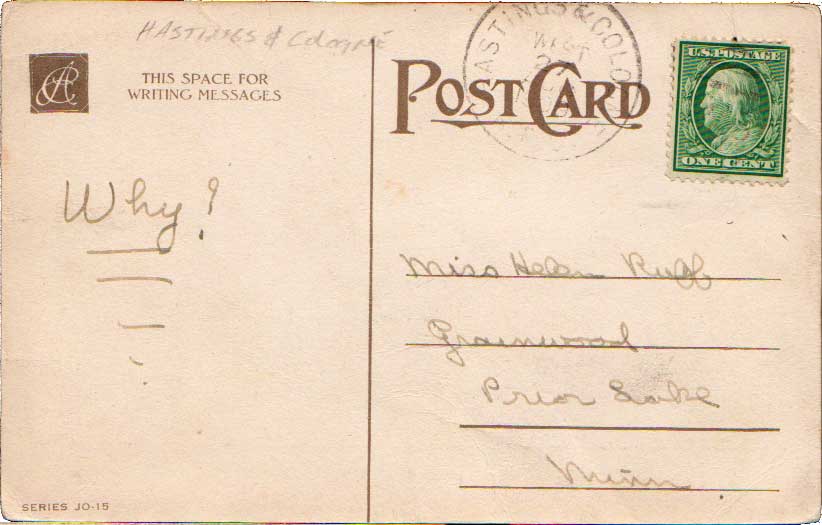 HASTINGS & COLOGNE
THIS SPACE FOR
WRITING MESSAGES
Why?
SERIES JO-15
ASTINGS & COLO
WEST
POST CARD
U.S. POSTAGE
ONE CENT
Miss Helen Ruff
Grainwood
Prior Lake
Minn